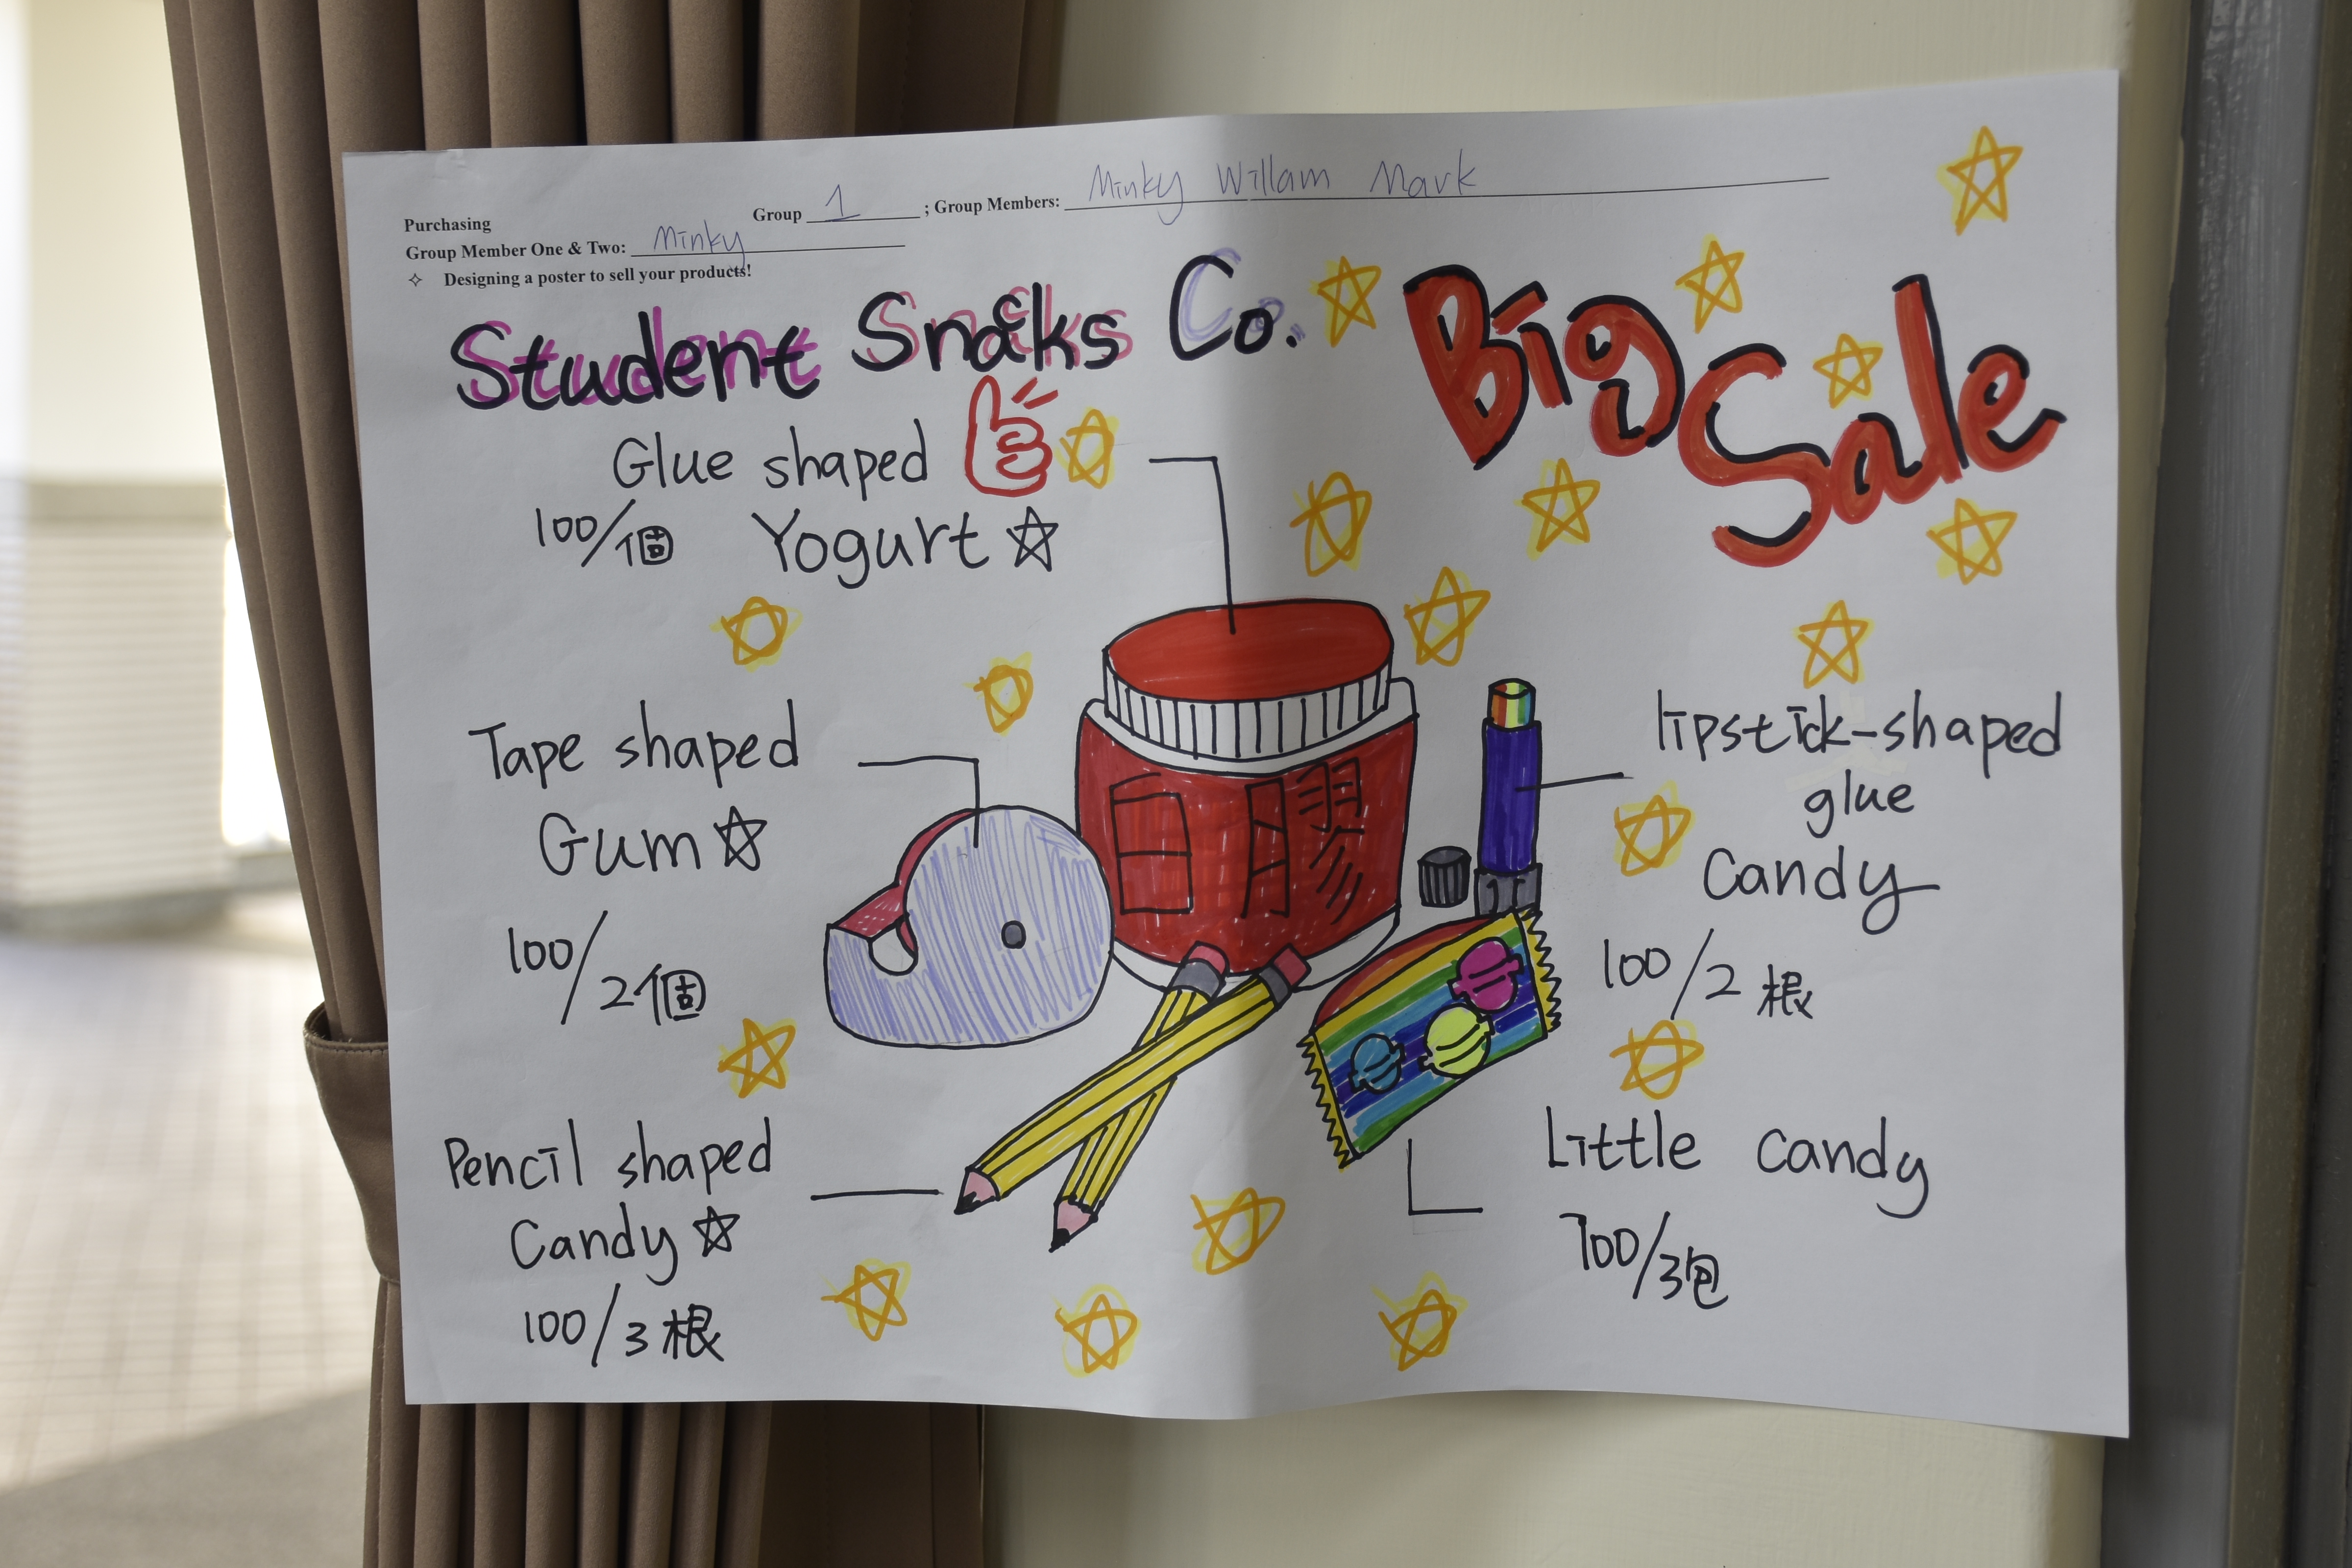 Group 1 ; Group Members: Minky Willam Mark
Purchasing
Group Member One & Two: Minky
✧ Designing a poster to sell your products!
Student Snacks Co.
Big Sale
Glue shaped
100/個 Yogurt ☆
Tape shaped
Gum ☆
100/2個
Pencil shaped
Candy ☆
100/3根
白膠
lipstick-shaped
glue
Candy
100/2根
Little candy
100/3包